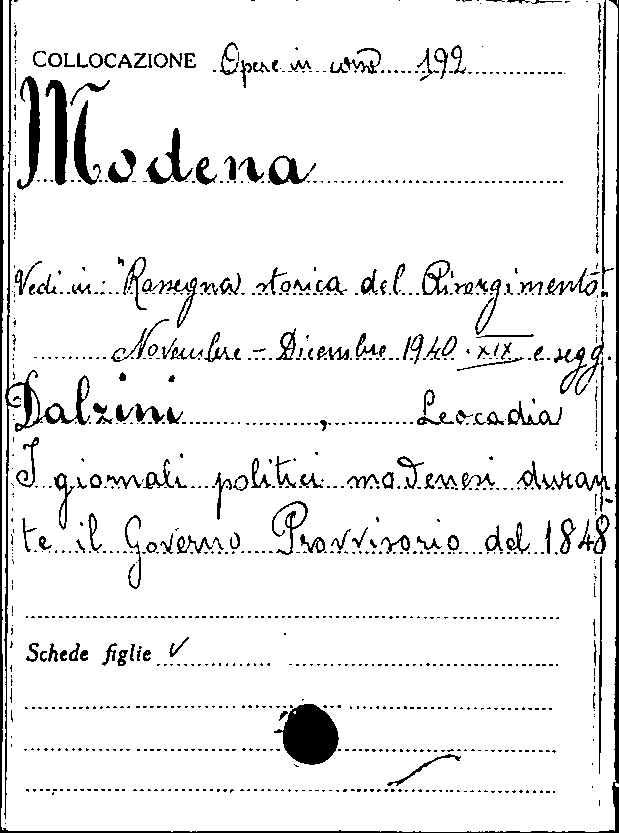 COLLOCAZIONE Opere in corso 192
Modena
Vedi in: "Rassegna storica del Risorgimento"
Novembre - Dicembre 1940 - XIX e segg.
Dalzini, Leocadia
I giornali politici modenesi duran-
te il Governo Provvisorio del 1848
Schede figlie ✓